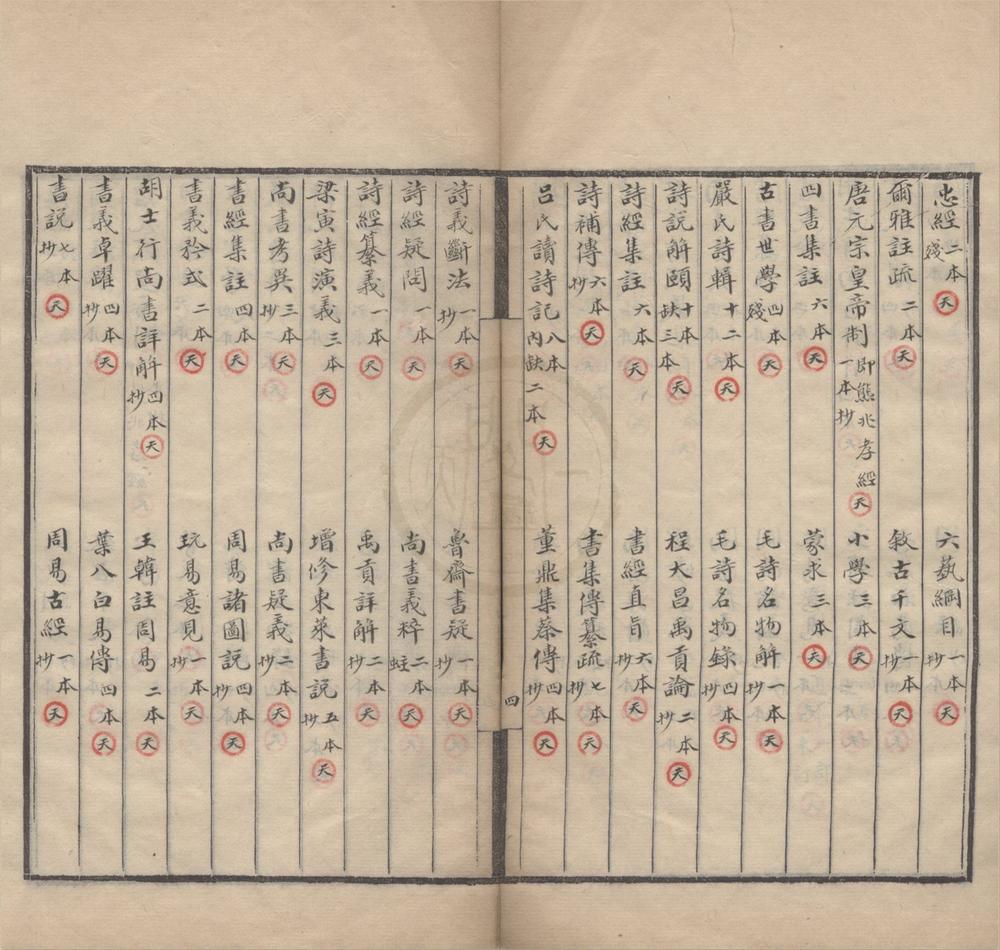 忠經二本殘天 六藝綱目一本抄天
爾雅註疏二本天 敘古千文一本抄天
唐元宗皇帝制即熊兆孝經一本抄天 小學三本天
四書集註六本天 蒙求三本天
古書世學四本殘天 毛詩名物解一本抄天
嚴氏詩輯十二本天 毛詩名物錄四本抄天
詩說解頤十本缺三本天 程大昌禹貢論二本抄天
詩經集註六本天 書經直旨六本抄天
詩補傳六本抄天 書集傳纂疏七本抄天
呂氏讀詩記八本內缺二本天 董鼎集蔡傳四本抄天
四
詩義斷法一本抄天 魯齋書疑一本抄天
詩經疑問一本抄天 尚書義粹二本蛀天
詩經纂義一本天 禹貢詳解二本抄天
梁寅詩演義三本天 增修東萊書說五本抄天
尚書考吳三本抄天 尚書疑義二本抄天
書經集註四本天 周易諸圖說四本抄天
書義矜式二本天 玩易意見一本抄天
胡士行尚書詳解四本抄天 王韓註周易二本天
書義卓躍四本抄天 葉八白易傳四本天
書說七本抄天 周易古經一本抄天